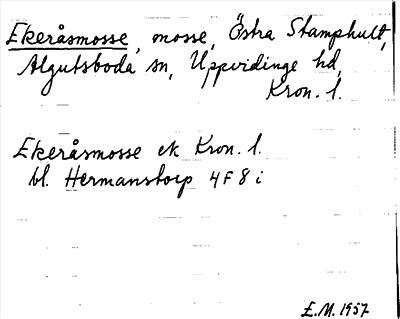 Ekeråsmosse, mosse, Östra Stamphult,
Algutsboda sn, Uppvidinge hd,
Kron. l.
Ekeråsmosse ek Kron. l.
bl. Hermanstorp 4F8i
E.M. 1957